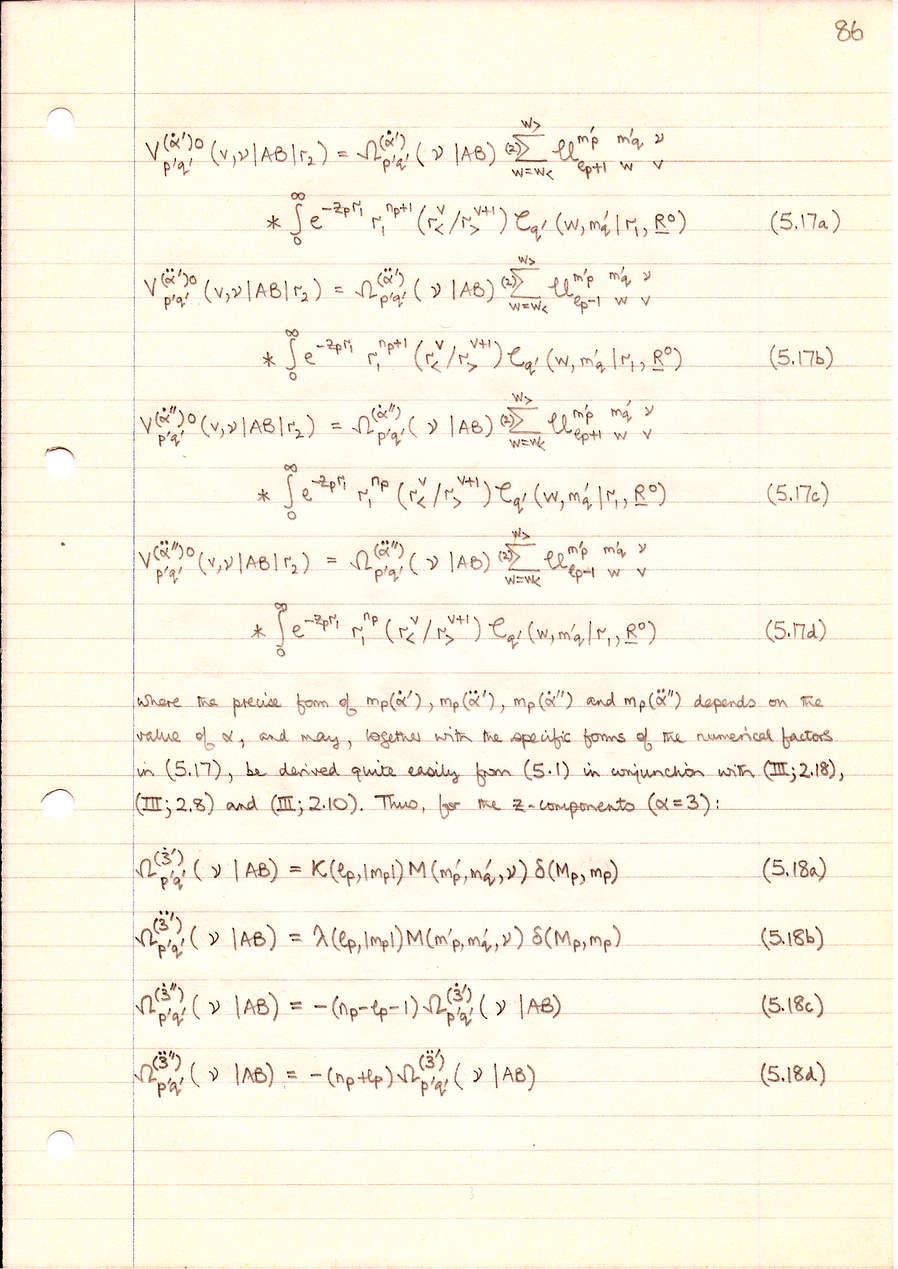 86
V_{p'q'}^{(α̇')0}(v,ν|AB|r₂) = Ω_{p'q'}^{(α̇')}(ν|AB) ⁽²⁾∑_{w=w<}^{w>} 𝒰_{ℓp+1 w v}^{m'p m'q ν}
* ∫₀^∞ e^{-zₚr₁} r₁^{nₚ+1} (r<^v/r>^{v+1}) 𝒞_{q'}(w,m'q|r₁,R⁰) (5.17a)
V_{p'q'}^{(α̈')0}(v,ν|AB|r₂) = Ω_{p'q'}^{(α̈')}(ν|AB) ⁽²⁾∑_{w=w<}^{w>} 𝒰_{ℓp-1 w v}^{m'p m'q ν}
* ∫₀^∞ e^{-zₚr₁} r₁^{nₚ+1} (r<^v/r>^{v+1}) 𝒞_{q'}(w,m'q|r₁,R⁰) (5.17b)
V_{p'q'}^{(α̇'')0}(v,ν|AB|r₂) = Ω_{p'q'}^{(α̇'')}(ν|AB) ⁽²⁾∑_{w=w<}^{w>} 𝒰_{ℓp+1 w v}^{m'p m'q ν}
* ∫₀^∞ e^{-zₚr₁} r₁^{nₚ} (r<^v/r>^{v+1}) 𝒞_{q'}(w,m'q|r₁,R⁰) (5.17c)
V_{p'q'}^{(α̈'')0}(v,ν|AB|r₂) = Ω_{p'q'}^{(α̈'')}(ν|AB) ⁽²⁾∑_{w=w<}^{w>} 𝒰_{ℓp-1 w v}^{m'p m'q ν}
* ∫₀^∞ e^{-zₚr₁} r₁^{nₚ} (r<^v/r>^{v+1}) 𝒞_{q'}(w,m'q|r₁,R⁰) (5.17d)
where the precise form of mₚ(α̇'), mₚ(α̈'), mₚ(α̇'') and mₚ(α̈'') depends on the
value of α, and may, together with the specific forms of the numerical factors
in (5.17), be derived quite easily from (5.1) in conjunction with (III; 2.18),
(III; 2.8) and (III; 2.10). Thus, for the z-components (α=3):
Ω_{p'q'}^{(3̇')}(ν|AB) = K(ℓp,|mp|) M(m'p,m'q,ν) δ(Mp,mp) (5.18a)
Ω_{p'q'}^{(3̈')}(ν|AB) = λ(ℓp,|mp|) M(m'p,m'q,ν) δ(Mp,mp) (5.18b)
Ω_{p'q'}^{(3̇'')}(ν|AB) = -(np-ℓp-1) Ω_{p'q'}^{(3̇')}(ν|AB) (5.18c)
Ω_{p'q'}^{(3̈'')}(ν|AB) = -(np+ℓp) Ω_{p'q'}^{(3̈')}(ν|AB) (5.18d)